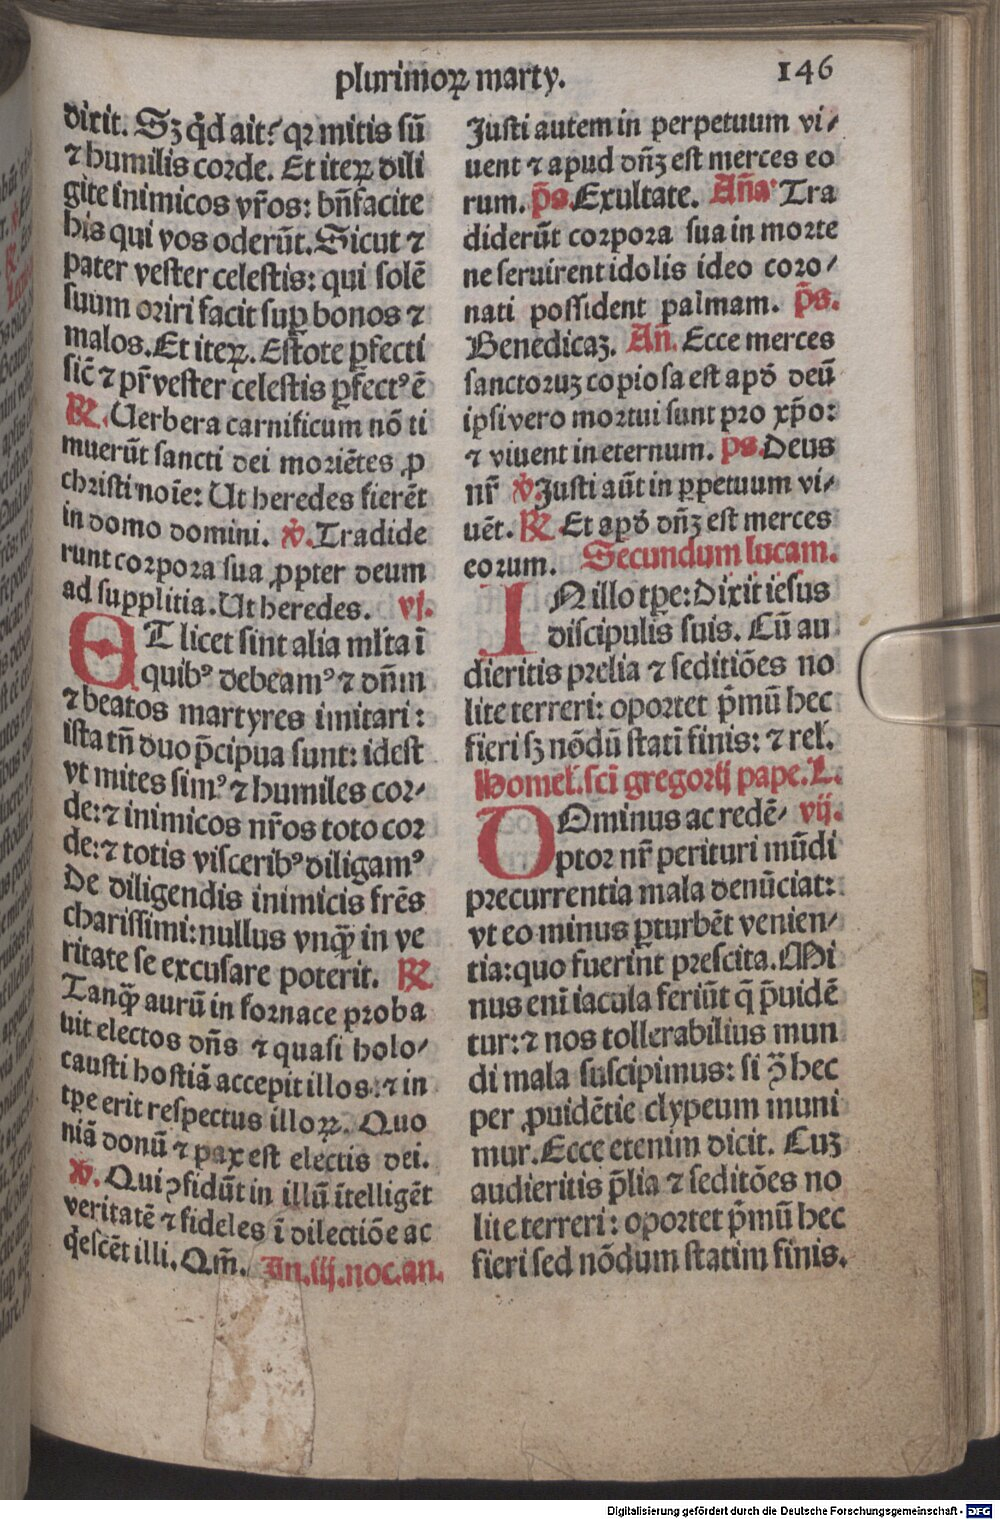 plurimoꝝ marty.
146
dixit. Sꝫ q̃d ait? qꝛ mitis sũ
⁊ humilis corde. Et iteꝝ dili
gite inimicos vr̃os: bñfacite
his qui vos oderũt. Sicut ⁊
pater vester celestis: qui solẽ
suum oriri facit suꝑ bonos ⁊
malos. Et iteꝝ. Estote ꝑfecti
sic̃ ⁊ pr̃ vester celestis ꝑfectꝰ ẽ
℟. Uerbera carnificum nõ ti
muerũt sancti dei moriẽtes ꝓ
christi noĩe: Ut heredes fierẽt
in domo domini. ℣. Tradide
runt corpora sua ꝓpter deum
ad supplitia. Ut heredes. vj.
ET licet sint alia ml̃ta ĩ
quibꝰ debeamꝰ ⁊ dñm
⁊ beatos martyres imitari:
ista tñ duo p̃cipua sunt: idest
vt mites simꝰ ⁊ humiles cor⸗
de: ⁊ inimicos nr̃os toto cor
de: ⁊ totis visceribꝰ diligamꝰ
De diligendis inimicis frẽs
charissimi: nullus vnq̃ꝫ in ve
ritate se excusare poterit. ℟
Tanq̃ꝫ aurũ in fornace proba
uit electos dñs ⁊ quasi holo⸗
causti hostiã accepit illos: ⁊ in
tꝑe erit respectus illoꝝ. Quo
niã donũ ⁊ pax est electis dei.
℣. Qui ꝯfidũt in illũ ĩtelligẽt
veritatẽ ⁊ fideles ĩ dilectiõe ac
q̇escẽt illi. Qm̃. In. iij. noc. an.
Justi autem in perpetuum vi⸗
uent ⁊ apud dñꝫ est merces eo
rum. p̃s. Exultate. Añа Tra
diderũt corpora sua in morte
ne seruirent idolis ideo coro⸗
nati possident palmam. p̃s.
Benedicaꝫ. Añ. Ecce merces
sanctoruꝫ copiosa est apð deũ
ipsi vero mortui sunt pro xp̃o:
⁊ viuent in eternum. ps. Deus
nr̃ ℣. Justi aũt in ꝑpetuum vi⸗
uẽt. ℟. Et apð dñꝫ est merces
eorum. Secundum lucam.
IN illo tꝑe: Dixit iesus
discipulis suis. Cũ au
dieritis prelia ⁊ seditiões no
lite terreri: oportet p̃mũ hec
fieri sꝫ nõdũ statĩ finis: ⁊ rel̃.
Homel̃. sci̇̃ gregorij pape. L.
DOminus ac redẽ⸗ vij.
ptor nr̃ perituri mũdi
precurrentia mala denũciat:
vt eo minus ꝑturbẽt venien⸗
tia: quo fuerint prescita. Mi
nus enĩ iacula feriũt q̃ p̃uidẽ
tur: ⁊ nos tollerabilius mun
di mala suscipimus: si ꝯ̃ hec
per ꝓuidẽtie clypeum muni
mur. Ecce etenim dicit. Cuꝫ
audieritis p̃lia ⁊ seditões no
lite terreri: oportet p̃mũ hec
fieri sed nõdum statim finis.
Digitalisierung gefördert durch die Deutsche Forschungsgemeinschaft - DFG